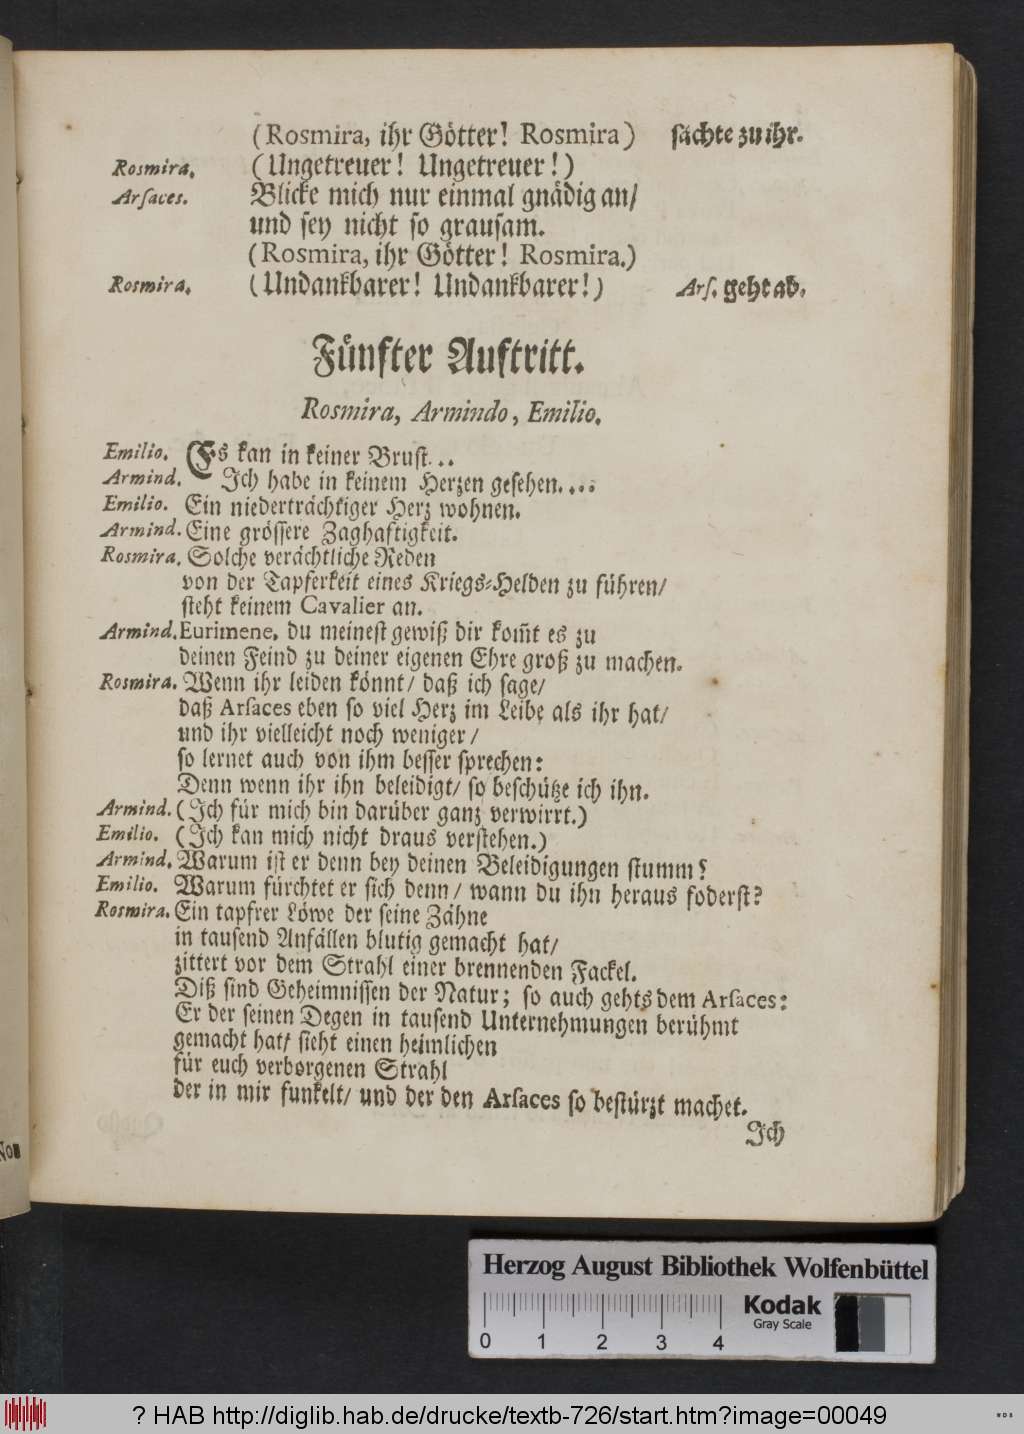 (Rosmira, ihr Götter! Rosmira) sachte zu ihr.
Rosmira. (Ungetreuer! Ungetreuer!)
Arsaces. Blicke mich nur einmal gnädig an/
und sey nicht so grausam.
(Rosmira, ihr Götter! Rosmira.)
Rosmira. (Undankbarer! Undankbarer!) Ars. geht ab.
Fünfter Auftritt.
Rosmira, Armindo, Emilio.
Emilio. Es kan in keiner Brust...
Armind. Ich habe in keinem Herzen gesehen....
Emilio. Ein niederträchtiger Herz wohnen.
Armind. Eine grössere Zaghaftigkeit.
Rosmira. Solche verächtliche Reden
von der Tapferkeit eines Kriegs-Helden zu führen/
steht keinem Cavalier an.
Armind. Eurimene, du meinest gewiß dir kom̃t es zu
deinen Feind zu deiner eigenen Ehre groß zu machen.
Rosmira. Wenn ihr leiden könnt/ daß ich sage/
daß Arsaces eben so viel Herz im Leibe als ihr hat/
und ihr vielleicht noch weniger/
so lernet auch von ihm besser sprechen:
Denn wenn ihr ihn beleidigt/ so beschütze ich ihn.
Armind. (Ich für mich bin darüber ganz verwirrt.)
Emilio. (Ich kan mich nicht draus verstehen.)
Armind. Warum ist er denn bey deinen Beleidigungen stumm?
Emilio. Warum fürchtet er sich denn/ wann du ihn heraus foderst?
Rosmira. Ein tapfrer Löwe der seine Zähne
in tausend Anfällen blutig gemacht hat/
zittert vor dem Strahl einer brennenden Fackel.
Diß sind Geheimnissen der Natur; so auch gehts dem Arsaces:
Er der seinen Degen in tausend Unternehmungen berühmt
gemacht hat/ sieht einen heimlichen
für euch verborgenen Strahl
der in mir funkelt/ und der den Arsaces so bestürzt machet.
Ich
Herzog August Bibliothek Wolfenbüttel
Kodak
Gray Scale
0 1 2 3 4
? HAB http://diglib.hab.de/drucke/textb-726/start.htm?image=00049